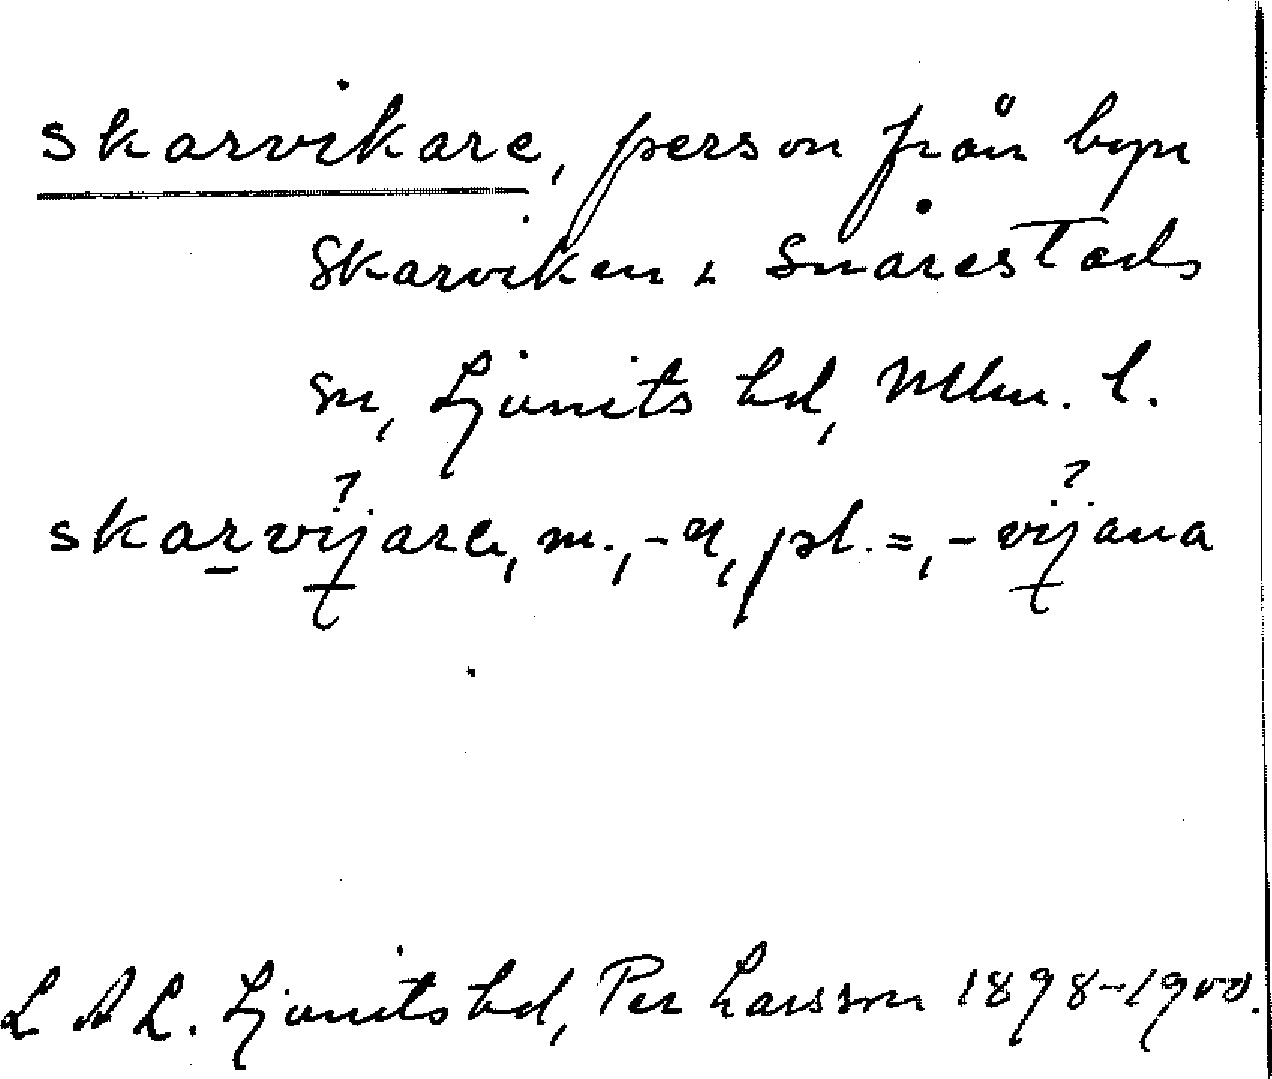 skarvikare, person från byn
Skarviken i Snårestads
sn, Ljunits hd, Mlm. l.
skarvijare, m., -n, pl. =, -vijana
L A L. Ljunits hd, Per Larsson 1898-1900.